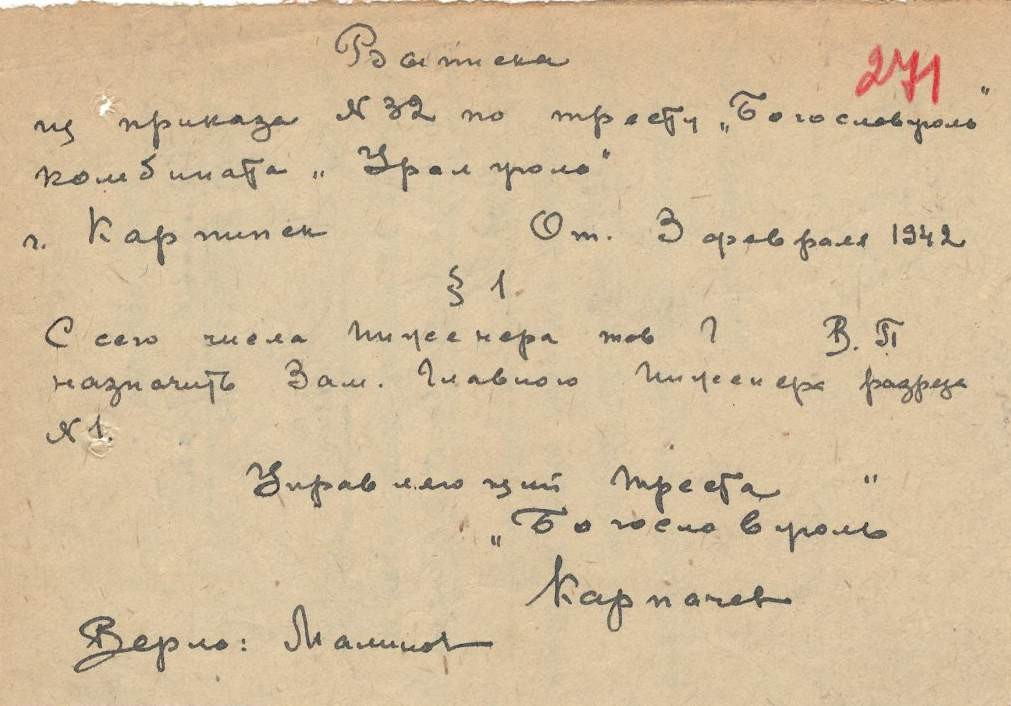 271
Выписка
из приказа № 32 по тресту „Богословуголь"
комбината „Уралуголь"
г. Карпинск От. 3 февраля 1942
§ 1.
С сего числа Инженера тов Г В. П
назначить Зам. Главного Инженера разреза
№ 1.
Управляющий треста
„Богословуголь"
Карпачев
Верно: Малинов